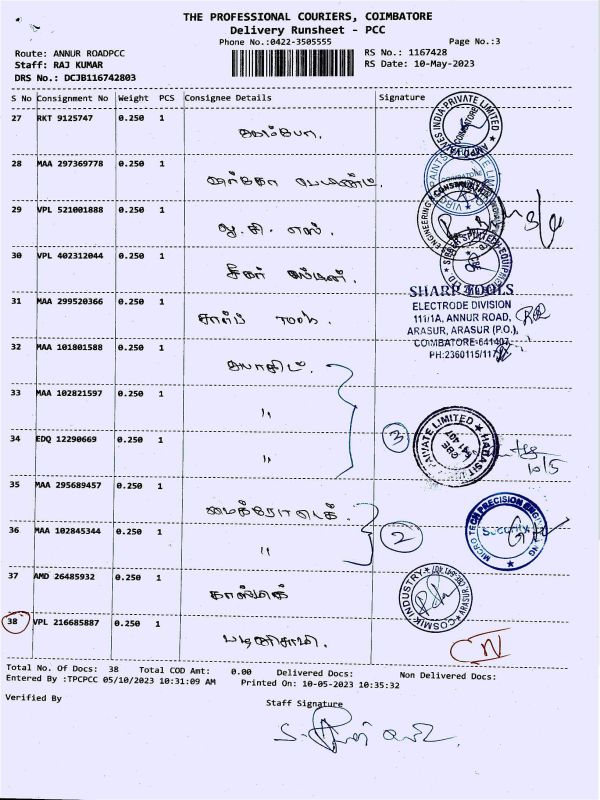 THE PROFESSIONAL COURIERS, COIMBATORE
Delivery Runsheet - PCC
Phone No.:0422-3505555 Page No.:3
Route: ANNUR ROADPCC RS No.: 1167428
Staff: RAJ KUMAR RS Date: 10-May-2023
DRS No.: DCJB116742803
S No Consignment No Weight PCS Consignee Details Signature
27 RKT 9125747 0.250 1
28 MAA 297369778 0.250 1
29 VPL 521001888 0.250 1
ஐ. சி. எஸ்.
30 VPL 402312044 0.250 1
31 MAA 299520366 0.250 1
சார்ப் Tools.
SHARP TOOLS
ELECTRODE DIVISION
111/1A, ANNUR ROAD,
ARASUR, ARASUR (P.O.),
COIMBATORE-641407
PH:2360115/117
32 MAA 101801588 0.250 1
33 MAA 102821597 0.250 1
"
34 EDQ 12290669 0.250 1
"
3
10/5
35 MAA 295689457 0.250 1
மைக்ரோடெக்.
36 MAA 102845344 0.250 1
"
2
MICRO TECH PRECISION ENGINEERING
37 AMD 26485932 0.250 1
காஸ்மிக்
COSMIK INDUSTRY
38 VPL 216685887 0.250 1
பழனிசாமி.
CN
Total No. Of Docs: 38 Total COD Amt: 0.00 Delivered Docs: Non Delivered Docs:
Entered By :TPCPCC 05/10/2023 10:31:09 AM Printed On: 10-05-2023 10:35:32
Verified By Staff Signature